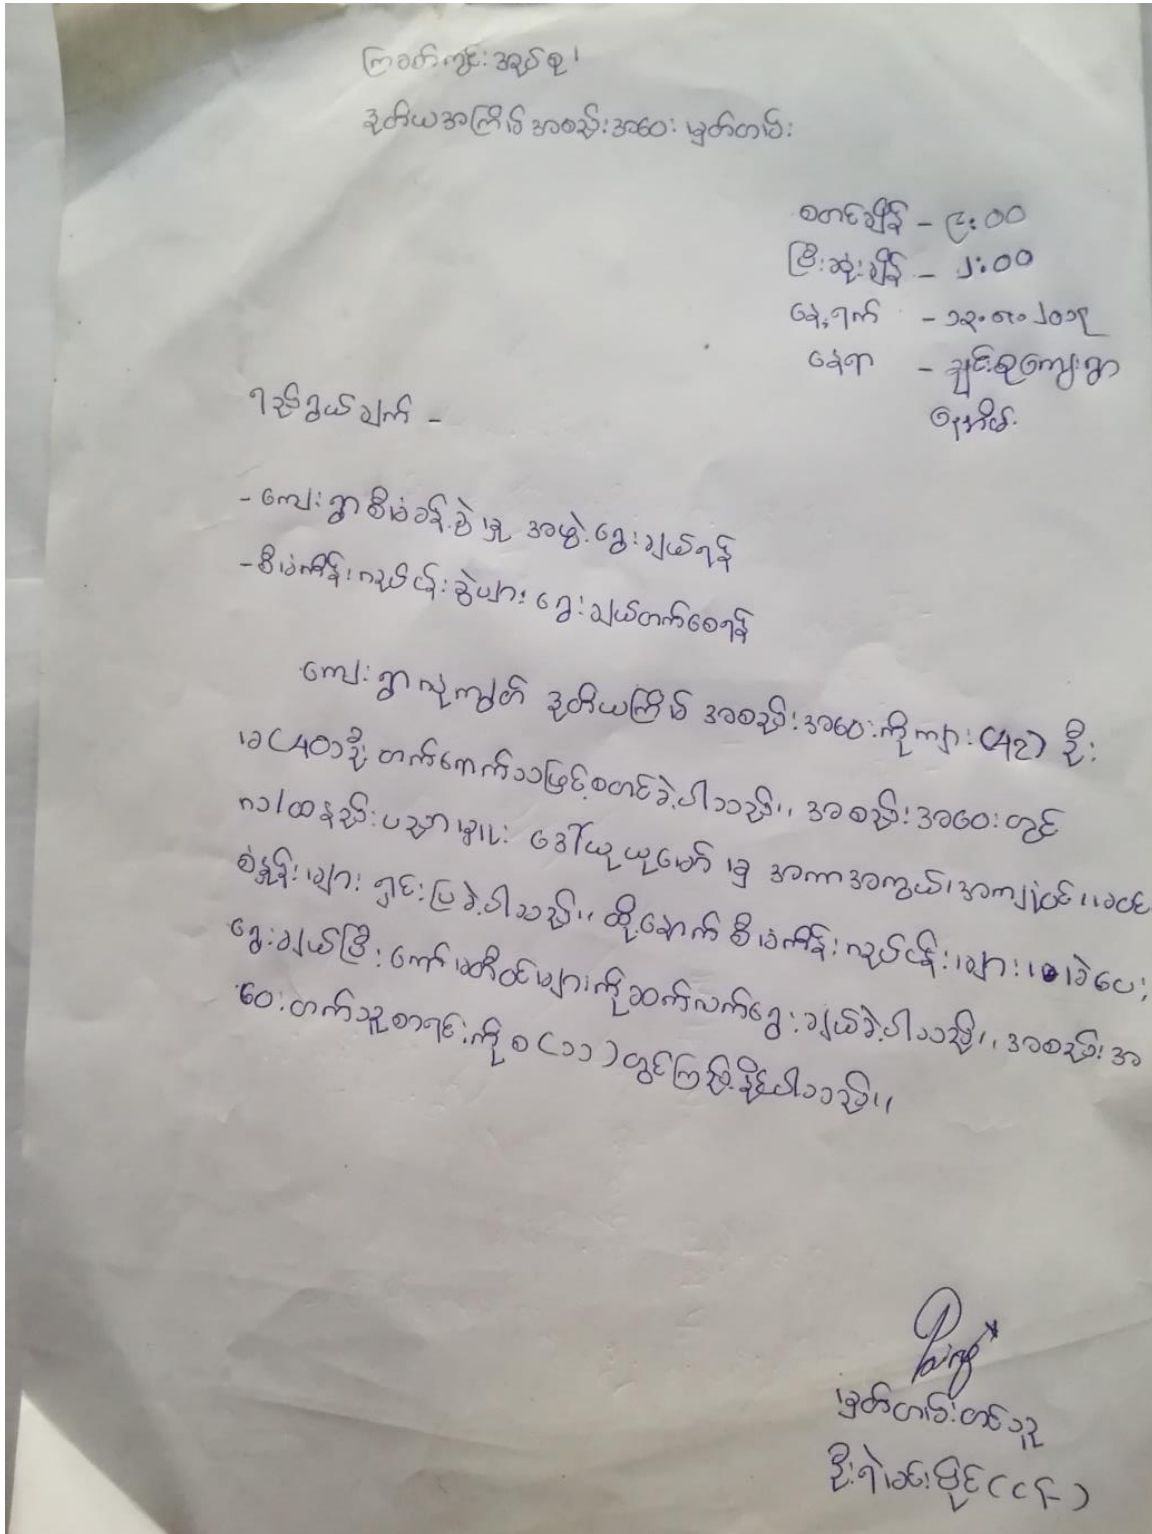 ကြခတ်ကွင်းအုပ်စု၊
ဒုတိယအကြိမ်အစည်းအဝေးမှတ်တမ်း
စတင်ချိန် - ၉း၀၀
ပြီးဆုံးချိန် - ၂း၀၀
နေ့ရက် - ၁၃.၈.၂၀၁၃
နေရာ - ချင်းစုကျေးရွာ
ရည်ရွယ်ချက် -
- ကျေးရွာစီမံခန့်ခွဲမှု အဖွဲ့ရွေးချယ်ရန်
- စီမံကိန်းလုပ်ငန်းခွဲများ ရွေးချယ်တက်စေရန်
ကျေးရွာလူထု ဒုတိယကြိမ် အစည်းအဝေးကိုကျား (၅၁) ဦး
မ (၅၀) ဦး တက်ရောက်သဖြင့်စတင်ခဲ့ပါသည်။ အစည်းအဝေးတွင်
နည်းပညာမှူး ဒေါ်ယုယုမော်မှ အကာအကွယ်၊
စံနှုန်းများ ရှင်းပြခဲ့ပါသည်။ ထို့နောက်စီမံကိန်းလုပ်ငန်းများ မဲပေး
ရွေးချယ်ပြီး ကော်မတီဝင်များကိုဆက်လက်ရွေးချယ်ခဲ့ပါသည်။ အစည်းအ
ဝေးတက်သူစာရင်းကို စ (၁၁) တွင်ကြည့်နိုင်ပါသည်။
မှတ်တမ်းတင်သူ
ဦးရဲမင်းပိုင် (CF)